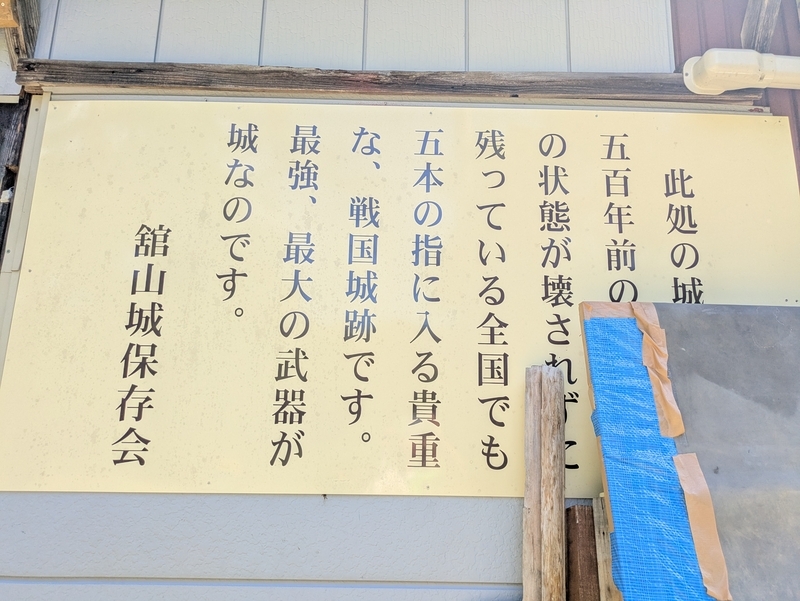 此処の城
五百年前の
の状態が壊されずに
残っている全国でも
五本の指に入る貴重
な、戦国城跡です。
最強、最大の武器が
城なのです。
舘山城保存会